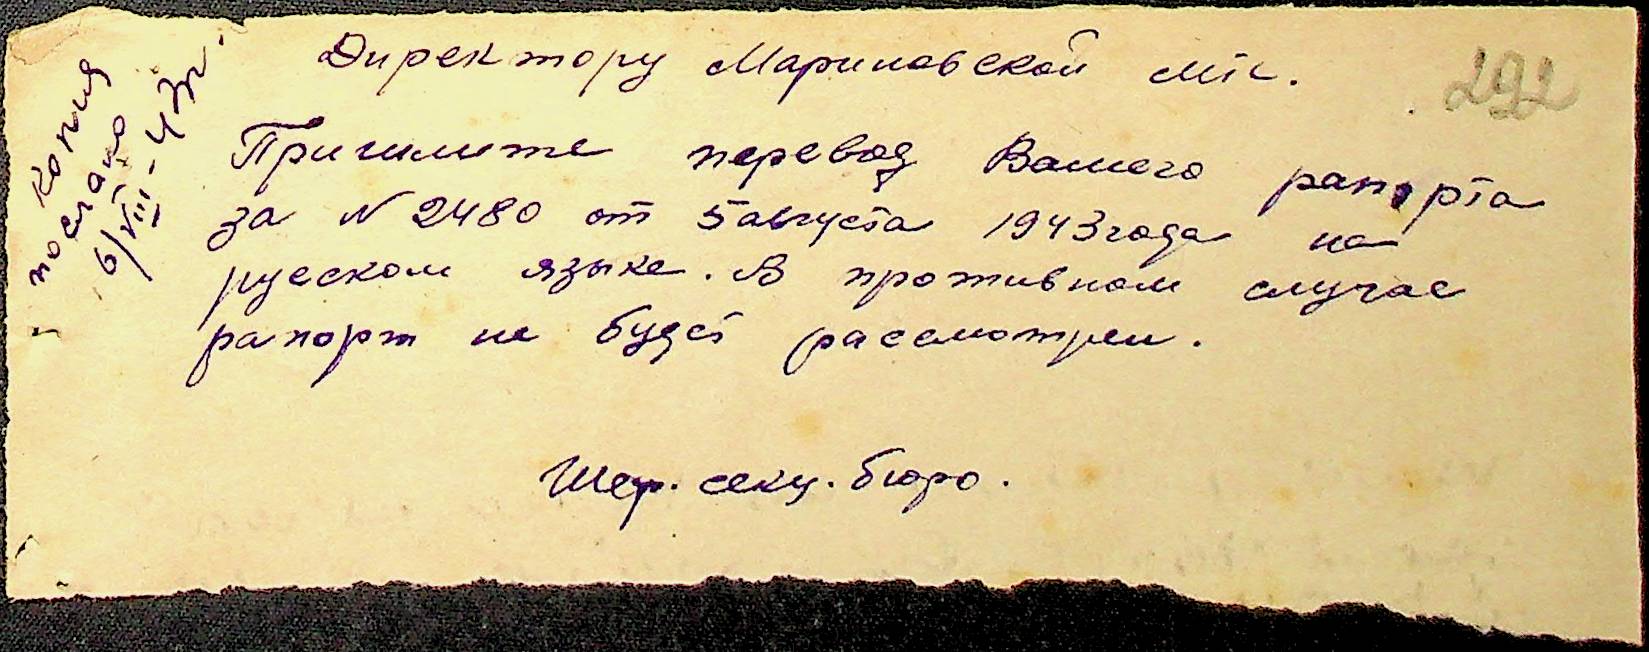 Копия
послано
6/VIII-43г.
292
Директору Мариновской мтс.
Пришлите перевод Вашего рапорта
за N 2480 от 5 августа 1943 года на
русском языке. В противном случае
рапорт не будет рассмотрен.
Шеф. секц. бюро.